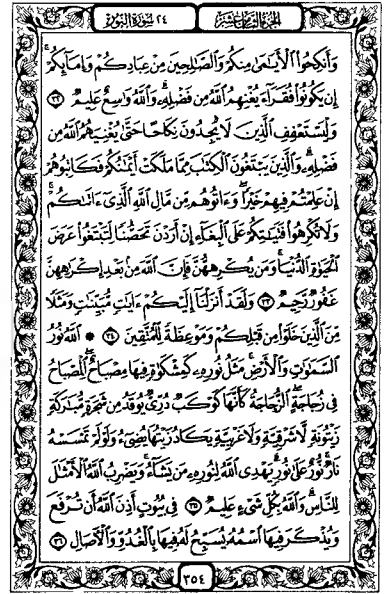 الجزء الثامن عشر ٢٤ سورة النور
وَأَنكِحُوا۟ ٱلْأَيَٰمَىٰ مِنكُمْ وَٱلصَّٰلِحِينَ مِنْ عِبَادِكُمْ وَإِمَآئِكُمْ ۚ
إِن يَكُونُوا۟ فُقَرَآءَ يُغْنِهِمُ ٱللَّهُ مِن فَضْلِهِۦ ۗ وَٱللَّهُ وَٰسِعٌ عَلِيمٌ ٣٢
وَلْيَسْتَعْفِفِ ٱلَّذِينَ لَا يَجِدُونَ نِكَاحًا حَتَّىٰ يُغْنِيَهُمُ ٱللَّهُ مِن
فَضْلِهِۦ ۗ وَٱلَّذِينَ يَبْتَغُونَ ٱلْكِتَٰبَ مِمَّا مَلَكَتْ أَيْمَٰنُكُمْ فَكَاتِبُوهُمْ
إِنْ عَلِمْتُمْ فِيهِمْ خَيْرًا ۖ وَءَاتُوهُم مِّن مَّالِ ٱللَّهِ ٱلَّذِىٓ ءَاتَىٰكُمْ ۚ
وَلَا تُكْرِهُوا۟ فَتَيَٰتِكُمْ عَلَى ٱلْبِغَآءِ إِنْ أَرَدْنَ تَحَصُّنًا لِّتَبْتَغُوا۟ عَرَضَ
ٱلْحَيَوٰةِ ٱلدُّنْيَا ۚ وَمَن يُكْرِههُّنَّ فَإِنَّ ٱللَّهَ مِنۢ بَعْدِ إِكْرَٰهِهِنَّ
غَفُورٌ رَّحِيمٌ ٣٣ وَلَقَدْ أَنزَلْنَآ إِلَيْكُمْ ءَايَٰتٍ مُّبَيِّنَٰتٍ وَمَثَلًا
مِّنَ ٱلَّذِينَ خَلَوْا۟ مِن قَبْلِكُمْ وَمَوْعِظَةً لِّلْمُتَّقِينَ ٣٤ ۞ ٱللَّهُ نُورُ
ٱلسَّمَٰوَٰتِ وَٱلْأَرْضِ ۚ مَثَلُ نُورِهِۦ كَمِشْكَوٰةٍ فِيهَا مِصْبَاحٌ ۖ ٱلْمِصْبَاحُ
فِى زُجَاجَةٍ ۖ ٱلزُّجَاجَةُ كَأَنَّهَا كَوْكَبٌ دُرِّىٌّ يُوقَدُ مِن شَجَرَةٍ مُّبَٰرَكَةٍ
زَيْتُونَةٍ لَّا شَرْقِيَّةٍ وَلَا غَرْبِيَّةٍ يَكَادُ زَيْتُهَا يُضِىٓءُ وَلَوْ لَمْ تَمْسَسْهُ
نَارٌ ۚ نُّورٌ عَلَىٰ نُورٍ ۗ يَهْدِى ٱللَّهُ لِنُورِهِۦ مَن يَشَآءُ ۚ وَيَضْرِبُ ٱللَّهُ ٱلْأَمْثَٰلَ
لِلنَّاسِ ۗ وَٱللَّهُ بِكُلِّ شَىْءٍ عَلِيمٌ ٣٥ فِى بُيُوتٍ أَذِنَ ٱللَّهُ أَن تُرْفَعَ
وَيُذْكَرَ فِيهَا ٱسْمُهُۥ يُسَبِّحُ لَهُۥ فِيهَا بِٱلْغُدُوِّ وَٱلْءَاصَالِ ٣٦
٣٥٤